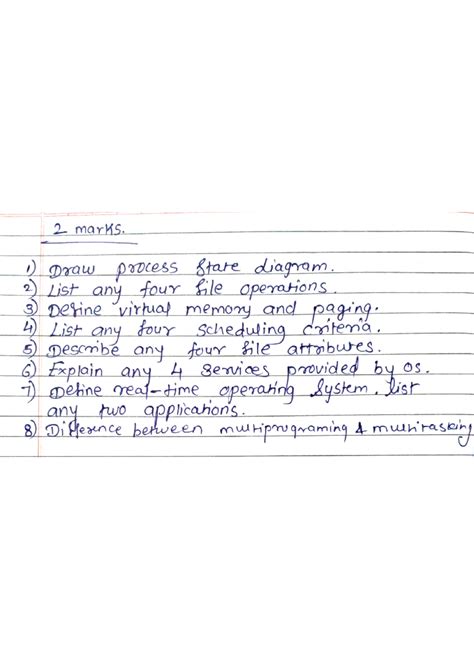 2 marks.
1) Draw process state diagram.
2) List any four file operations.
3) Define virtual memory and paging.
4) List any four scheduling criteria.
5) Describe any four file attributes.
6) Explain any 4 services provided by OS.
7) Define real-time operating system. List
any two applications.
8) Difference between multiprograming & multitasking